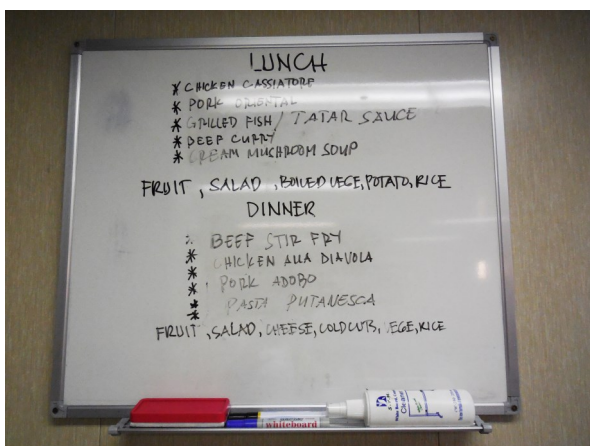 LUNCH
* CHICKEN CASSIATORE
* PORK ORIENTAL
* GRILLED FISH / TATAR SAUCE
* BEEF CURRY
* CREAM MUCHROOM SOUP
FRUIT, SALAD, BOILED VEGE, POTATO, RICE
DINNER
BEEF STIR FRY
* CHICKEN ALLA DIAVOLA
* PORK ADOBO
* PASTA PUTANESCA
FRUIT, SALAD, CHEESE, COLD CUTS, EGE, RICE
whiteboard
Cleaner